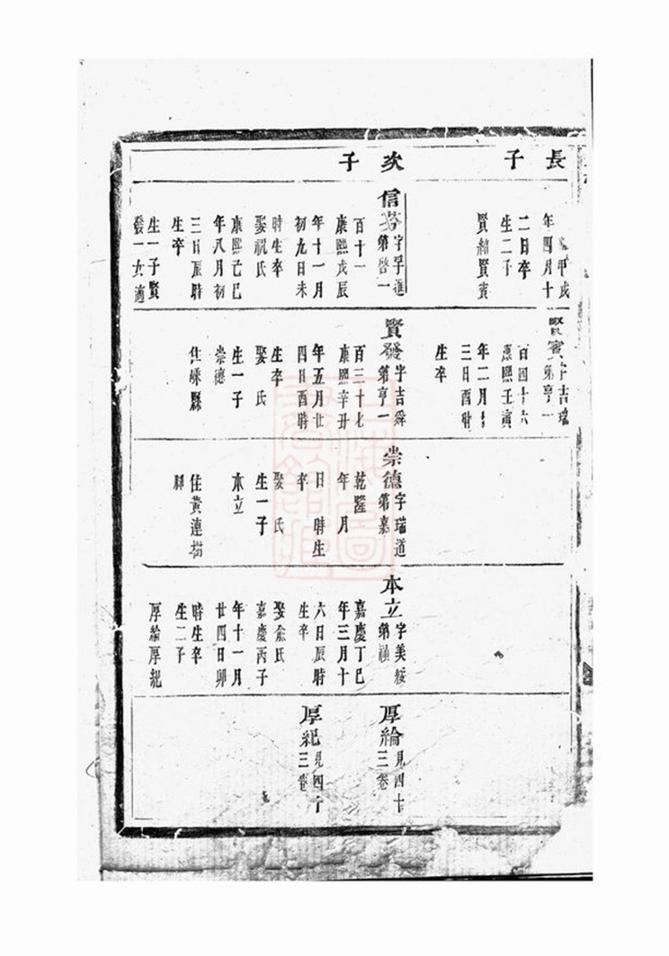 長子
次子
甲戌
年四月十
二日卒
生二子
賢緒賢賓
信芬
字孚進
第啓一
百十一
康熙戊辰
年十一月
初九日未
時生卒
娶祝氏
康熙己巳
年八月初
三日辰時
生卒
生一子賢
發一女適
賢賓
字吉瑞
第亨一
百四十六
康熙壬寅
年二月
三日酉時
生卒
賢發
字吉舜
第亨一
百三十七
康熙辛丑
年五月廿
四日酉時
生卒
娶 氏
生一子
崇德
住嵊縣
崇德
字瑞道
第嘉
乾隆
年 月
日 時生
卒
娶 氏
生一子
本立
住黃連

本立
字美綏
第
嘉慶丁巳
年三月十
六日辰時
生卒
娶俞氏
嘉慶丙子
年十一月
廿四日卯
時生卒
生二子
厚綸厚紀
厚綸
見四十
三卷
厚紀
見四十
三卷